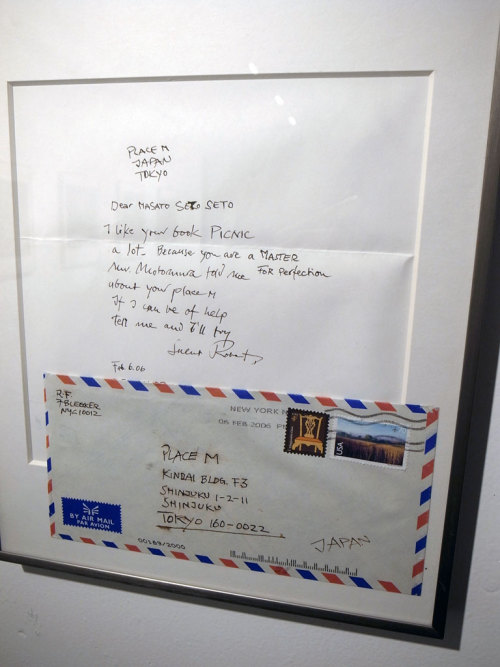 PLACE M
JAPAN
TOKYO
Dear MASATO SETO SETO
I like your book PICNIC
a lot. Because you are a MASTER
Mr. Motomura told me FOR perfection
about your place M
If I can be of help
tell me and I'll try
Robert
Feb 6.06
R.F.
7 BLEECKER
N.Y.C 10012
NEW YORK N
06 FEB 2006 P
USA
PLACE M
KINDAI BLDG. F3
SHINJUKU 1-2-11
SHINJUKU
TOKYO 160-0022
JAPAN
BY AIR MAIL
PAR AVION